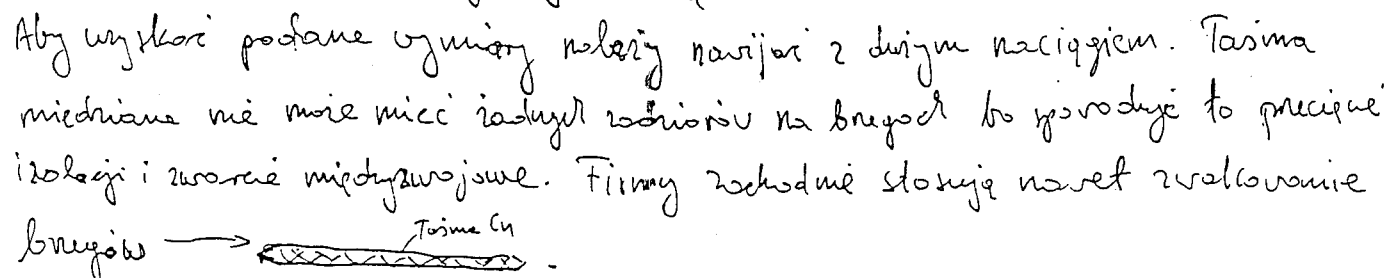 Aby uzyskać podane wymiary należy nawijać z dużym naciągiem. Taśma
miedziana nie może mieć żadnych zadziorów na brzegach bo spowoduje to przecięcie
izolacji i zwarcie międzyzwojowe. Firmy zachodnie stosują nawet zwalcowanie
brzegów
Taśma Cu